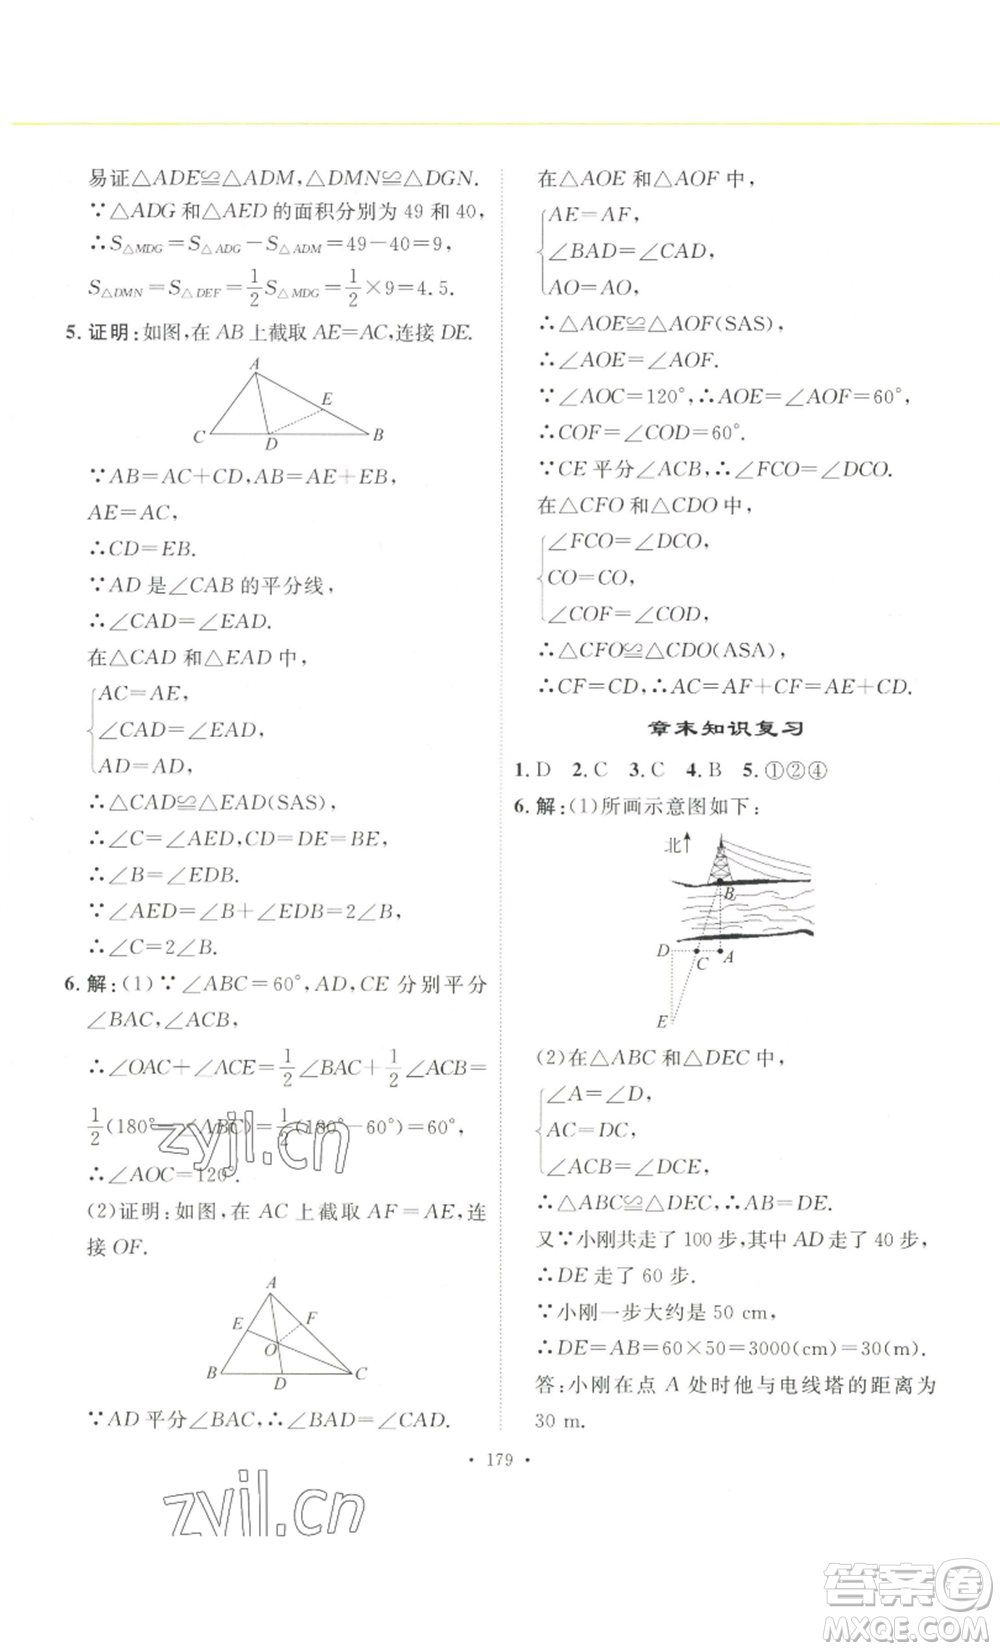 易证△ADE≌△ADM,△DMN≌△DGN.
∵△ADG和△AED的面积分别为49和40,
∴S△MDG=S△ADG-S△ADM=49-40=9,
S△DMN=S△DEF=1/2 S△MDG=1/2×9=4.5.
5.证明:如图,在AB上截取AE=AC,连接DE.
A
E
C
D
B
∵AB=AC+CD,AB=AE+EB,
AE=AC,
∴CD=EB.
∵AD是∠CAB的平分线,
∴∠CAD=∠EAD.
在△CAD和△EAD中,
AC=AE,
∠CAD=∠EAD,
AD=AD,
∴△CAD≌△EAD(SAS)
∴∠C=∠AED,CD=DE=BE,
∴∠B=∠EDB.
∵∠AED=∠B+∠EDB=2∠B,
∴∠C=2∠B.
6.解:(1)∵∠ABC=60°,AD,CE分别平分
∠BAC,∠ACB,
∴∠OAC+∠ACE=1/2∠BAC+1/2∠ACB=
1/2(180°-∠ABC)=1/2(180°-60°)=60°,
∴∠AOC=120°.
(2)证明:如图,在AC上截取AF=AE,连
接OF.
A
E
F
O
B
D
C
∵AD平分∠BAC,∴∠BAD=∠CAD.
在△AOE和△AOF中,
AE=AF,
∠BAD=∠CAD,
AO=AO,
∴△AOE≌△AOF(SAS),
∴∠AOE=∠AOF.
∵∠AOC=120°,∴∠AOE=∠AOF=60°,
∴∠COF=∠COD=60°.
∵CE平分∠ACB,∴∠FCO=∠DCO.
在△CFO和△CDO中,
∠FCO=∠DCO,
CO=CO,
∠COF=∠COD,
∴△CFO≌△CDO(ASA),
∴CF=CD,∴AC=AF+CF=AE+CD.
章末知识复习
1.D 2.C 3.C 4.B 5.①②④
6.解:(1)所画示意图如下:
北
B
D
C
A
E
(2)在△ABC和△DEC中,
∠A=∠D,
AC=DC,
∠ACB=∠DCE,
∴△ABC≌△DEC,∴AB=DE.
又∵小刚共走了100步,其中AD走了40步,
∴DE走了60步.
∵小刚一步大约是50 cm,
∴DE=AB=60×50=3000(cm)=30(m).
答:小刚在点A处时他与电线塔的距离为
30 m.
• 179 •
zyjl.cn
zyjl.cn
答案圈
MXQE.COM